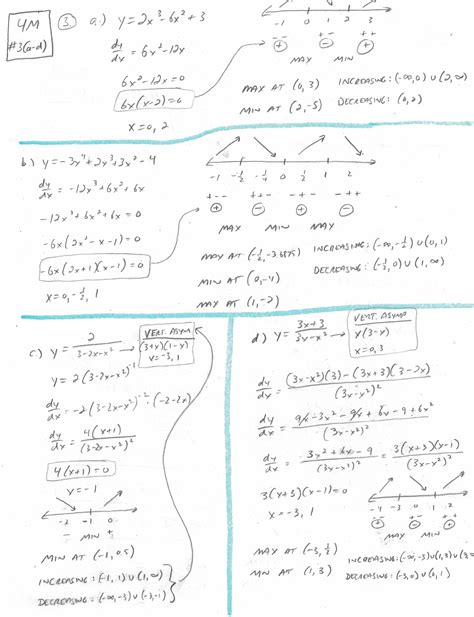 4M
#3(a-d)
③ a.) y=2x³-6x²+3
dy/dx = 6x²-12x
6x²-12x=0
6x(x-2)=0
x=0, 2
-1 0 1 2 3
-- +- ++
⊕ ⊖ ⊕
MAX MIN
MAX AT (0, 3) INCREASING: (-∞,0)∪(2,∞)
MIN AT (2,-5) DECREASING: (0,2)
b.) y=-3x⁴+2x³+3x²-4
dy/dx = -12x³+6x²+6x
-12x³+6x²+6x=0
-6x(2x²-x-1)=0
-6x(2x+1)(x-1)=0
x=0,-½, 1
-1 -½ -¼ 0 ½ 1 2
+-- ++- -+- -++
⊕ ⊖ ⊕ ⊖
MAX MIN MAX
MAX AT (-½,-3.6875) INCREASING: (-∞,-½)∪(0,1)
MIN AT (0,-4) DECREASING: (-½,0)∪(1,∞)
MAX AT (1,-2)
c.) y= 2/(3-2x-x²)
VERT. ASYM
(3+x)(1-x)
x=-3,1
y=2(3-2x-x²)⁻¹
dy/dx = -2(3-2x-x²)⁻²·(-2-2x)
dy/dx = 4(x+1)/(3-2x-x²)²
4(x+1)=0
x=-1
-2 -1 0
- MIN +
MIN AT (-1, 0.5)
INCREASING: (-1,1)∪(1,∞)
DECREASING: (-∞,-3)∪(-3,-1)
d.) y= (3x+3)/(3x-x²)
VERT. ASYMP
x(3-x)
x=0,3
dy/dx = ((3x-x²)(3)-(3x+3)(3-2x))/(3x-x²)²
dy/dx = (9x-3x²-9x+6x-9+6x²)/(3x-x²)²
dy/dx = (3x²+6x-9)/(3x-x²)² = 3(x+3)(x-1)/(3x-x²)²
3(x+3)(x-1)=0
x=-3,1
-4 -3 0 1 2
-- +- ++
⊕ ⊖ ⊕
MAX MIN
MAX AT (-3,⅓)
MIN AT (1,3)
INCREASING: (-∞,-3)∪(1,3)∪(3,∞
DECREASING: (-3,0)∪(0,1)